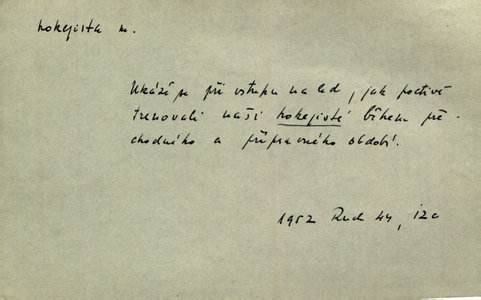 hokejista m.
Ukáže se při vstupu na led, jak poctivě
trenovali naši hokejisté během pře-
chodného a přípravného období.
1952 Ruch 44, 12a